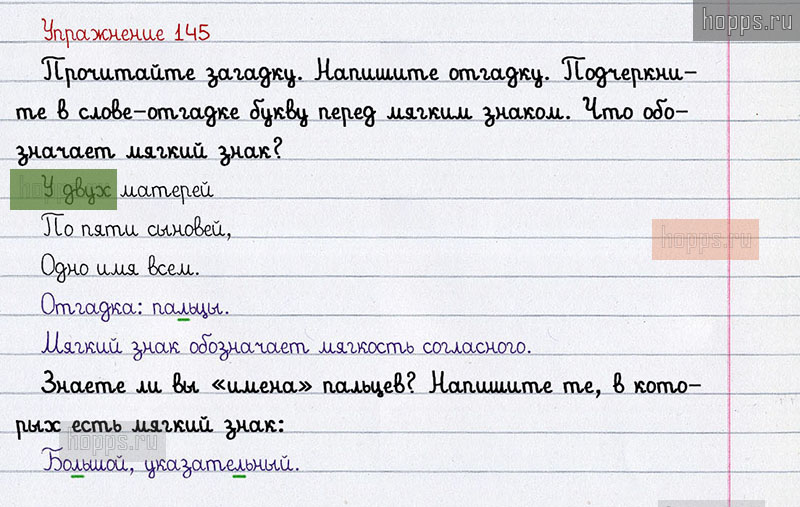 hopps.ru
Упражнение 145
Прочитайте загадку. Напишите отгадку. Подчеркни-
те в слове-отгадке букву перед мягким знаком. Что обо-
значает мягкий знак?
У двух матерей
По пяти сыновей,
hopps.ru
Одно имя всем.
Отгадка: пальцы.
Мягкий знак обозначает мягкость согласного.
Знаете ли вы «имена» пальцев? Напишите те, в кото-
рых есть мягкий знак:
hopps.ru
Большой, указательный.